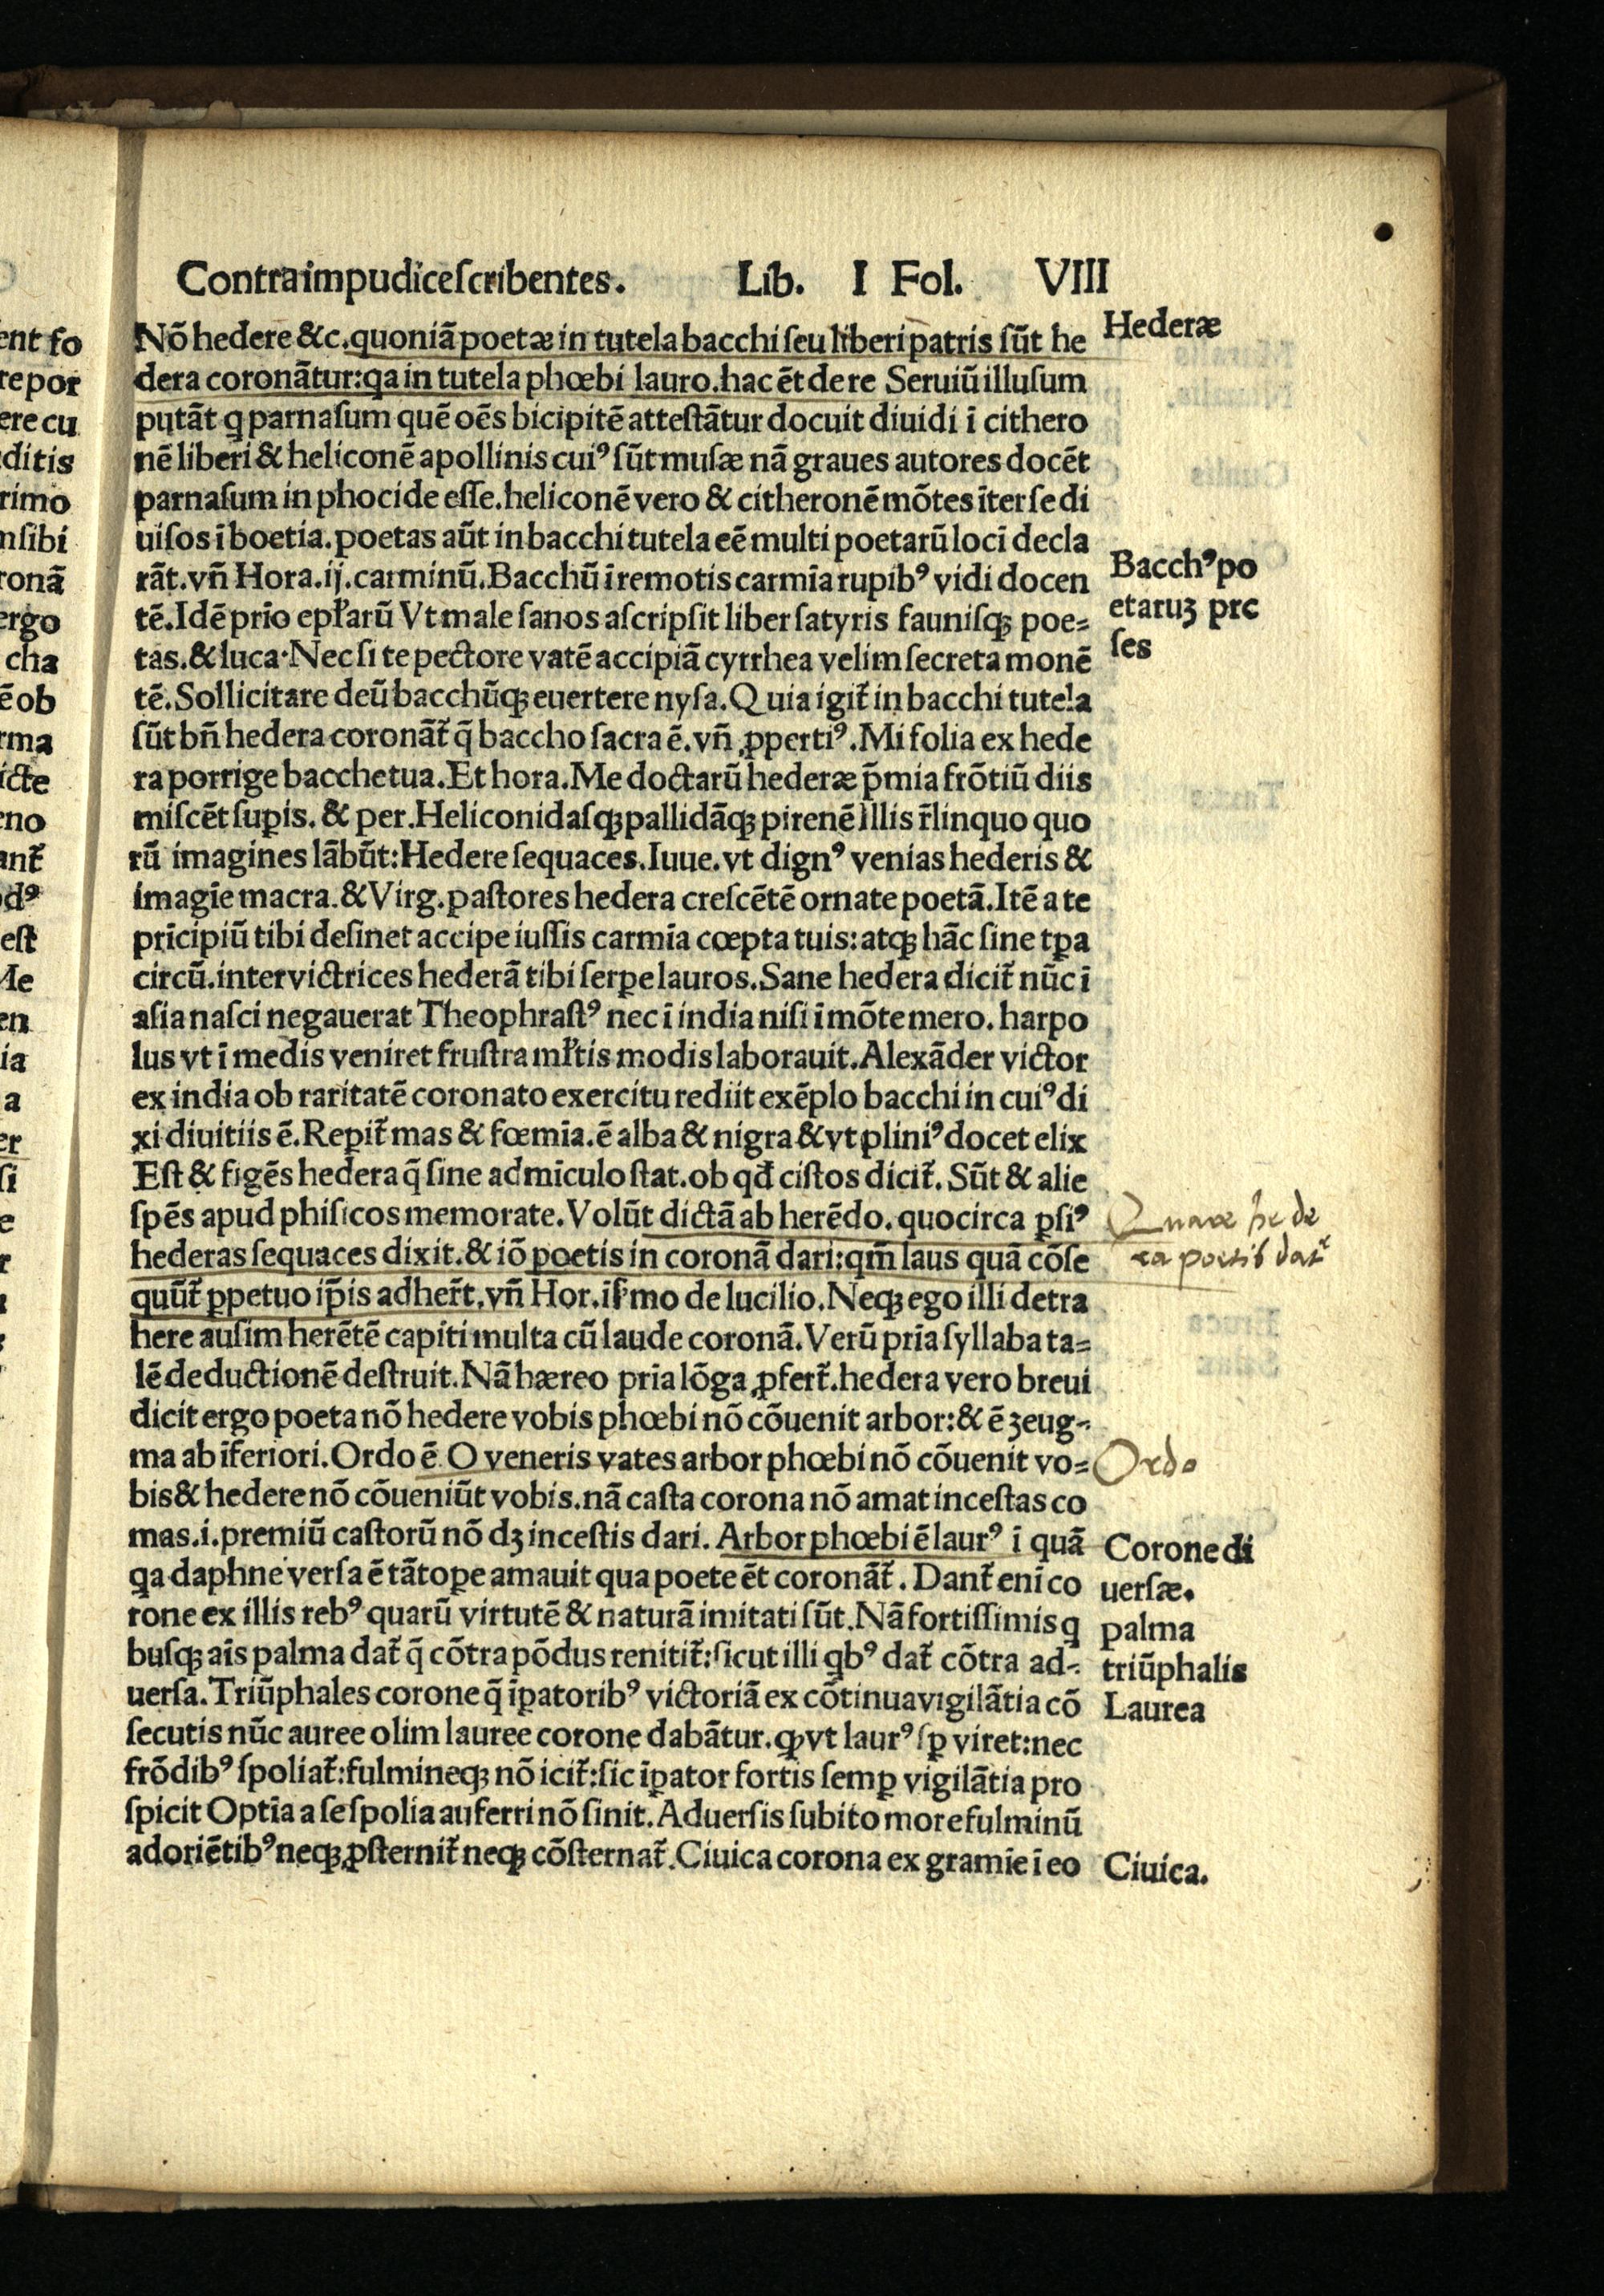 Contra impudice scribentes. Lib. I Fol. VIII
Nō hedere &c. quoniā poetæ in tutela bacchi seu liberi patris sūt he
Hederæ
dera coronātur: qa in tutela phœbi lauro. hac ēt de re Seruiū illusum
putāt q parnasum quē oēs bicipitē attestātur docuit diuidi ī cithero
nē liberi & heliconē apollinis cuiꝰ sūt musæ nā graues autores docēt
parnasum in phocide esse. heliconē vero & citheronē mōtes īter se di
uisos ī boetia. poetas aūt in bacchi tutela eē multi poetarū loci decla
rāt. vñ Hora. ij. carminū. Bacchū ī remotis carmīa rupibꝰ vidi docen
Bacchꝰ po
etaruꝫ pre
ses
tē. Idē prīo epł'arū Vt male sanos ascripsit liber satyris faunisqꝫ poe=
tas. & luca. Nec si te pectore vatē accipiā cyrrhea velim secreta monē
tē. Sollicitare deū bacchūqꝫ euertere nysa. Quia igit̃ in bacchi tutela
sūt bñ hedera coronāt̃ q̄ baccho sacra ē. vñ ꝓpertiꝰ. Mi folia ex hede
ra porrige bacche tua. Et hora. Me doctarū hederæ p̄mia frōtiū diis
miscēt suꝑis. & per. Heliconidasqꝫ pallidāqꝫ pirenē illis r̃linquo quo
rū imagines lābūt: Hedere sequaces. Iuue. vt dignꝰ venias hederis &
imagīe macra. & Virg. pastores hedera crescētē ornate poetā. Itē a te
prīcipiū tibi desinet accipe iussis carmīa cœpta tuis: atqꝫ hāc sine tꝑa
circū. inter victrices hederā tibi serꝑe lauros. Sane hedera dicit̃ nūc ī
asia nasci negauerat Theophrastꝰ nec ī india nisi ī mōte mero. harpo
lus vt ī medis veniret frustra mł'tis modis laborauit. Alexāder victor
ex india ob raritatē coronato exercitu rediit exēplo bacchi in cuiꝰ di
xi diuitiis ē. Reꝑit̃ mas & fœmīa. ē alba & nigra & vt pliniꝰ docet elix
Est & figēs hedera q̄ sine admīculo stat. ob qđ cistos dicit̃. Sūt & alie
spēs apud phisicos memorate. Volūt dictā ab herēdo. quocirca ꝑsiꝰ
Quare hede
ra poetis dat̃
hederas sequaces dixit. & iō poetis in coronā dari: qm̄ laus quā cōse
quūt̃ ꝑpetuo ip̄is adher̃t. vñ Hor. ī s̾mo de lucilio. Neqꝫ ego illi detra
here ausim herētē capiti multa cū laude coronā. Verū prīa syllaba ta=
lē deductionē destruit. Nā hæreo prīa lōga ꝓfert̃. hedera vero breui
dicit ergo poeta nō hedere vobis phœbi nō cōuenit arbor: & ē ʒeug=
ma ab īferiori. Ordo ē O veneris vates arbor phœbi nō cōuenit vo=
Ordo
bis & hedere nō cōueniūt vobis. nā casta corona nō amat incestas co
mas. i. premiū castorū nō dʒ incestis dari. Arbor phœbi ē laurꝰ ī quā
Corone di
uersæ.
qa daphne versa ē tātoꝑe amauit qua poete ēt coronāt̃. Dant̃ enī co
rone ex illis rebꝰ quarū virtutē & naturā imitati sūt. Nā fortissimis q
palma
busqꝫ aīs palma dat̃ q̄ cōtra pōdus renitit̃: sicut illi qbꝰ dat̃ cōtra ad=
triūphalis
uersa. Triūphales corone q̄ īꝑatoribꝰ victoriā ex cōtinua vigilātia cō
Laurea
secutis nūc auree olim lauree corone dabātur. ꝙ vt laurꝰ sꝑ viret: nec
frōdibꝰ spoliat̃: fulmineqꝫ nō icit̃: sic īꝑator fortis semꝑ vigilātia pro
spicit Optīa a se spolia auferri nō sinit. Aduersis subito more fulminū
adoriētibꝰ neqꝫ ꝓsternit̃ neqꝫ cōsternat̃. Ciuica corona ex gramīe ī eo
Ciuica.